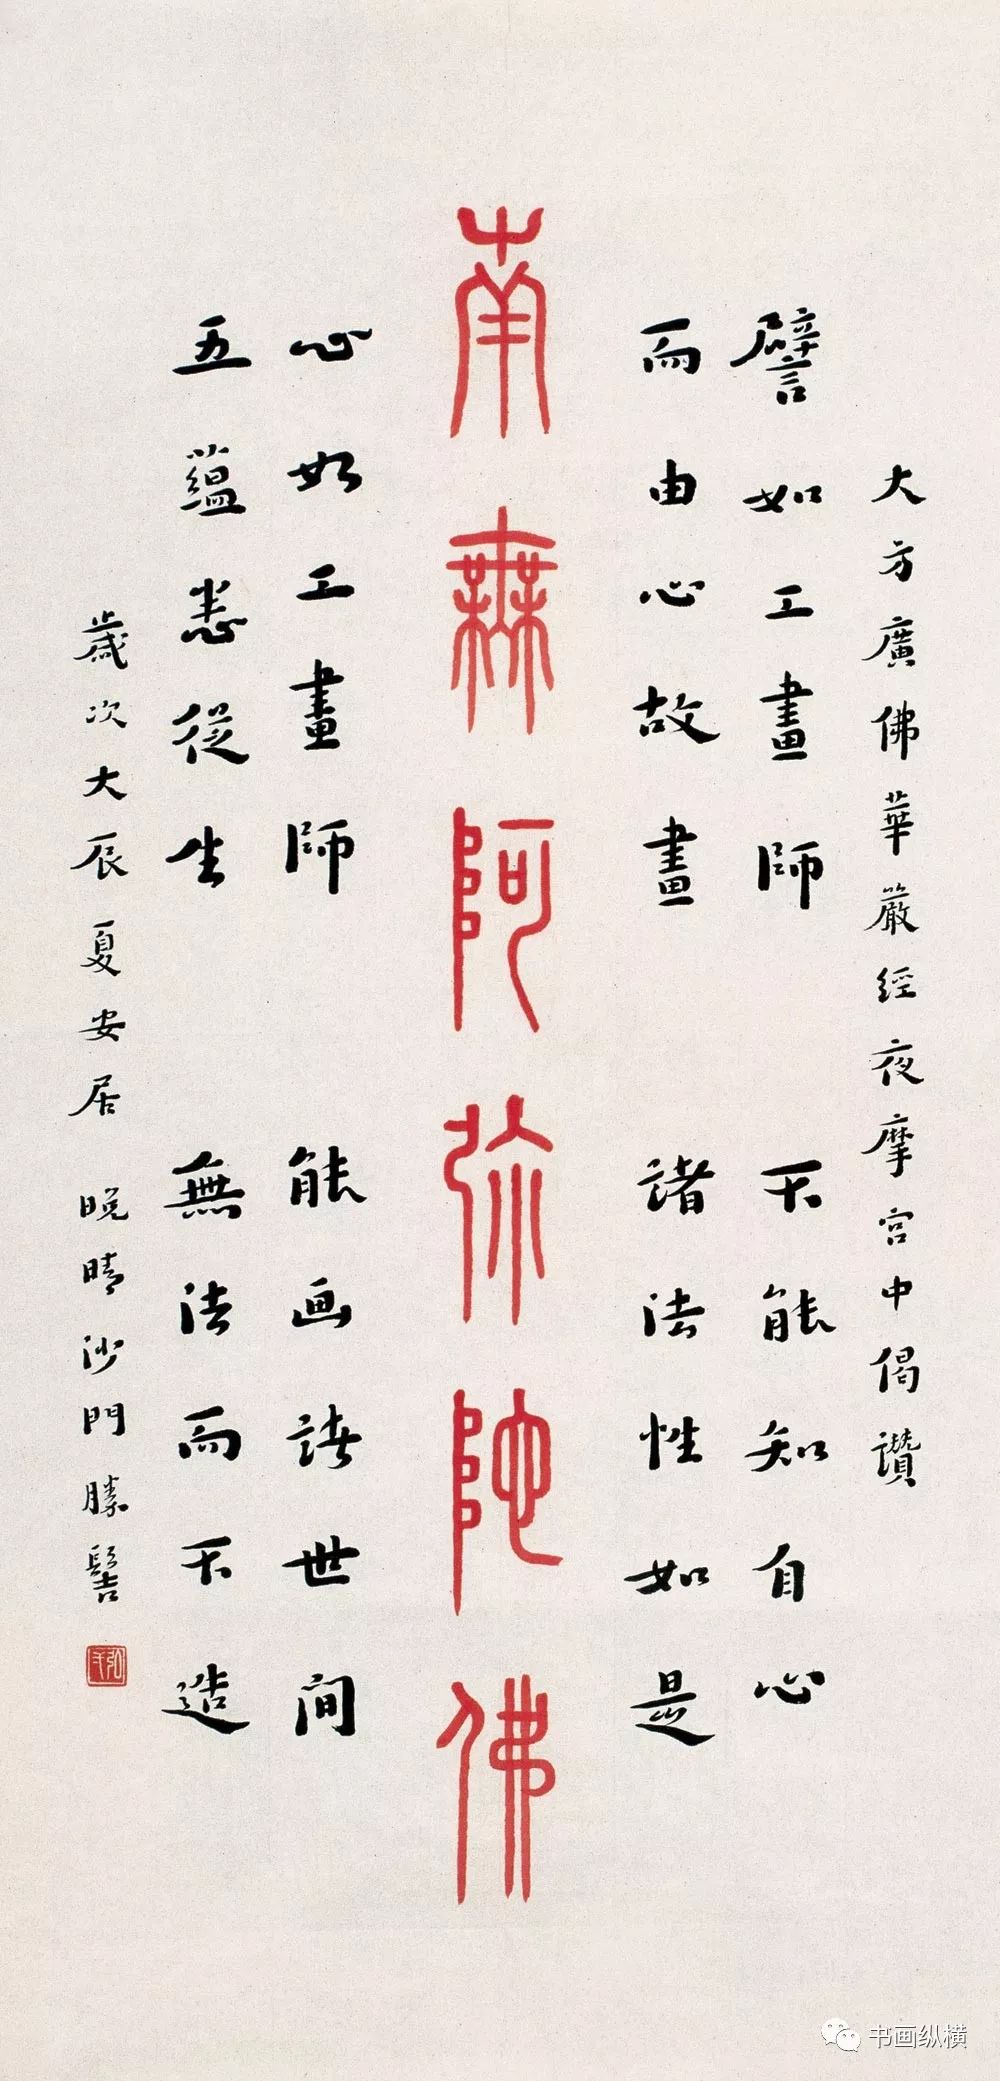 大方廣佛華嚴經夜摩宮中偈讚
譬如工畫師 不能知自心
而由心故畫 諸法性如是
南無阿弥陀佛
心如工畫師 能画諸世间
五蘊悉從生 無法而不造
歲次大辰夏安居 晚晴沙門勝髻
书画纵横